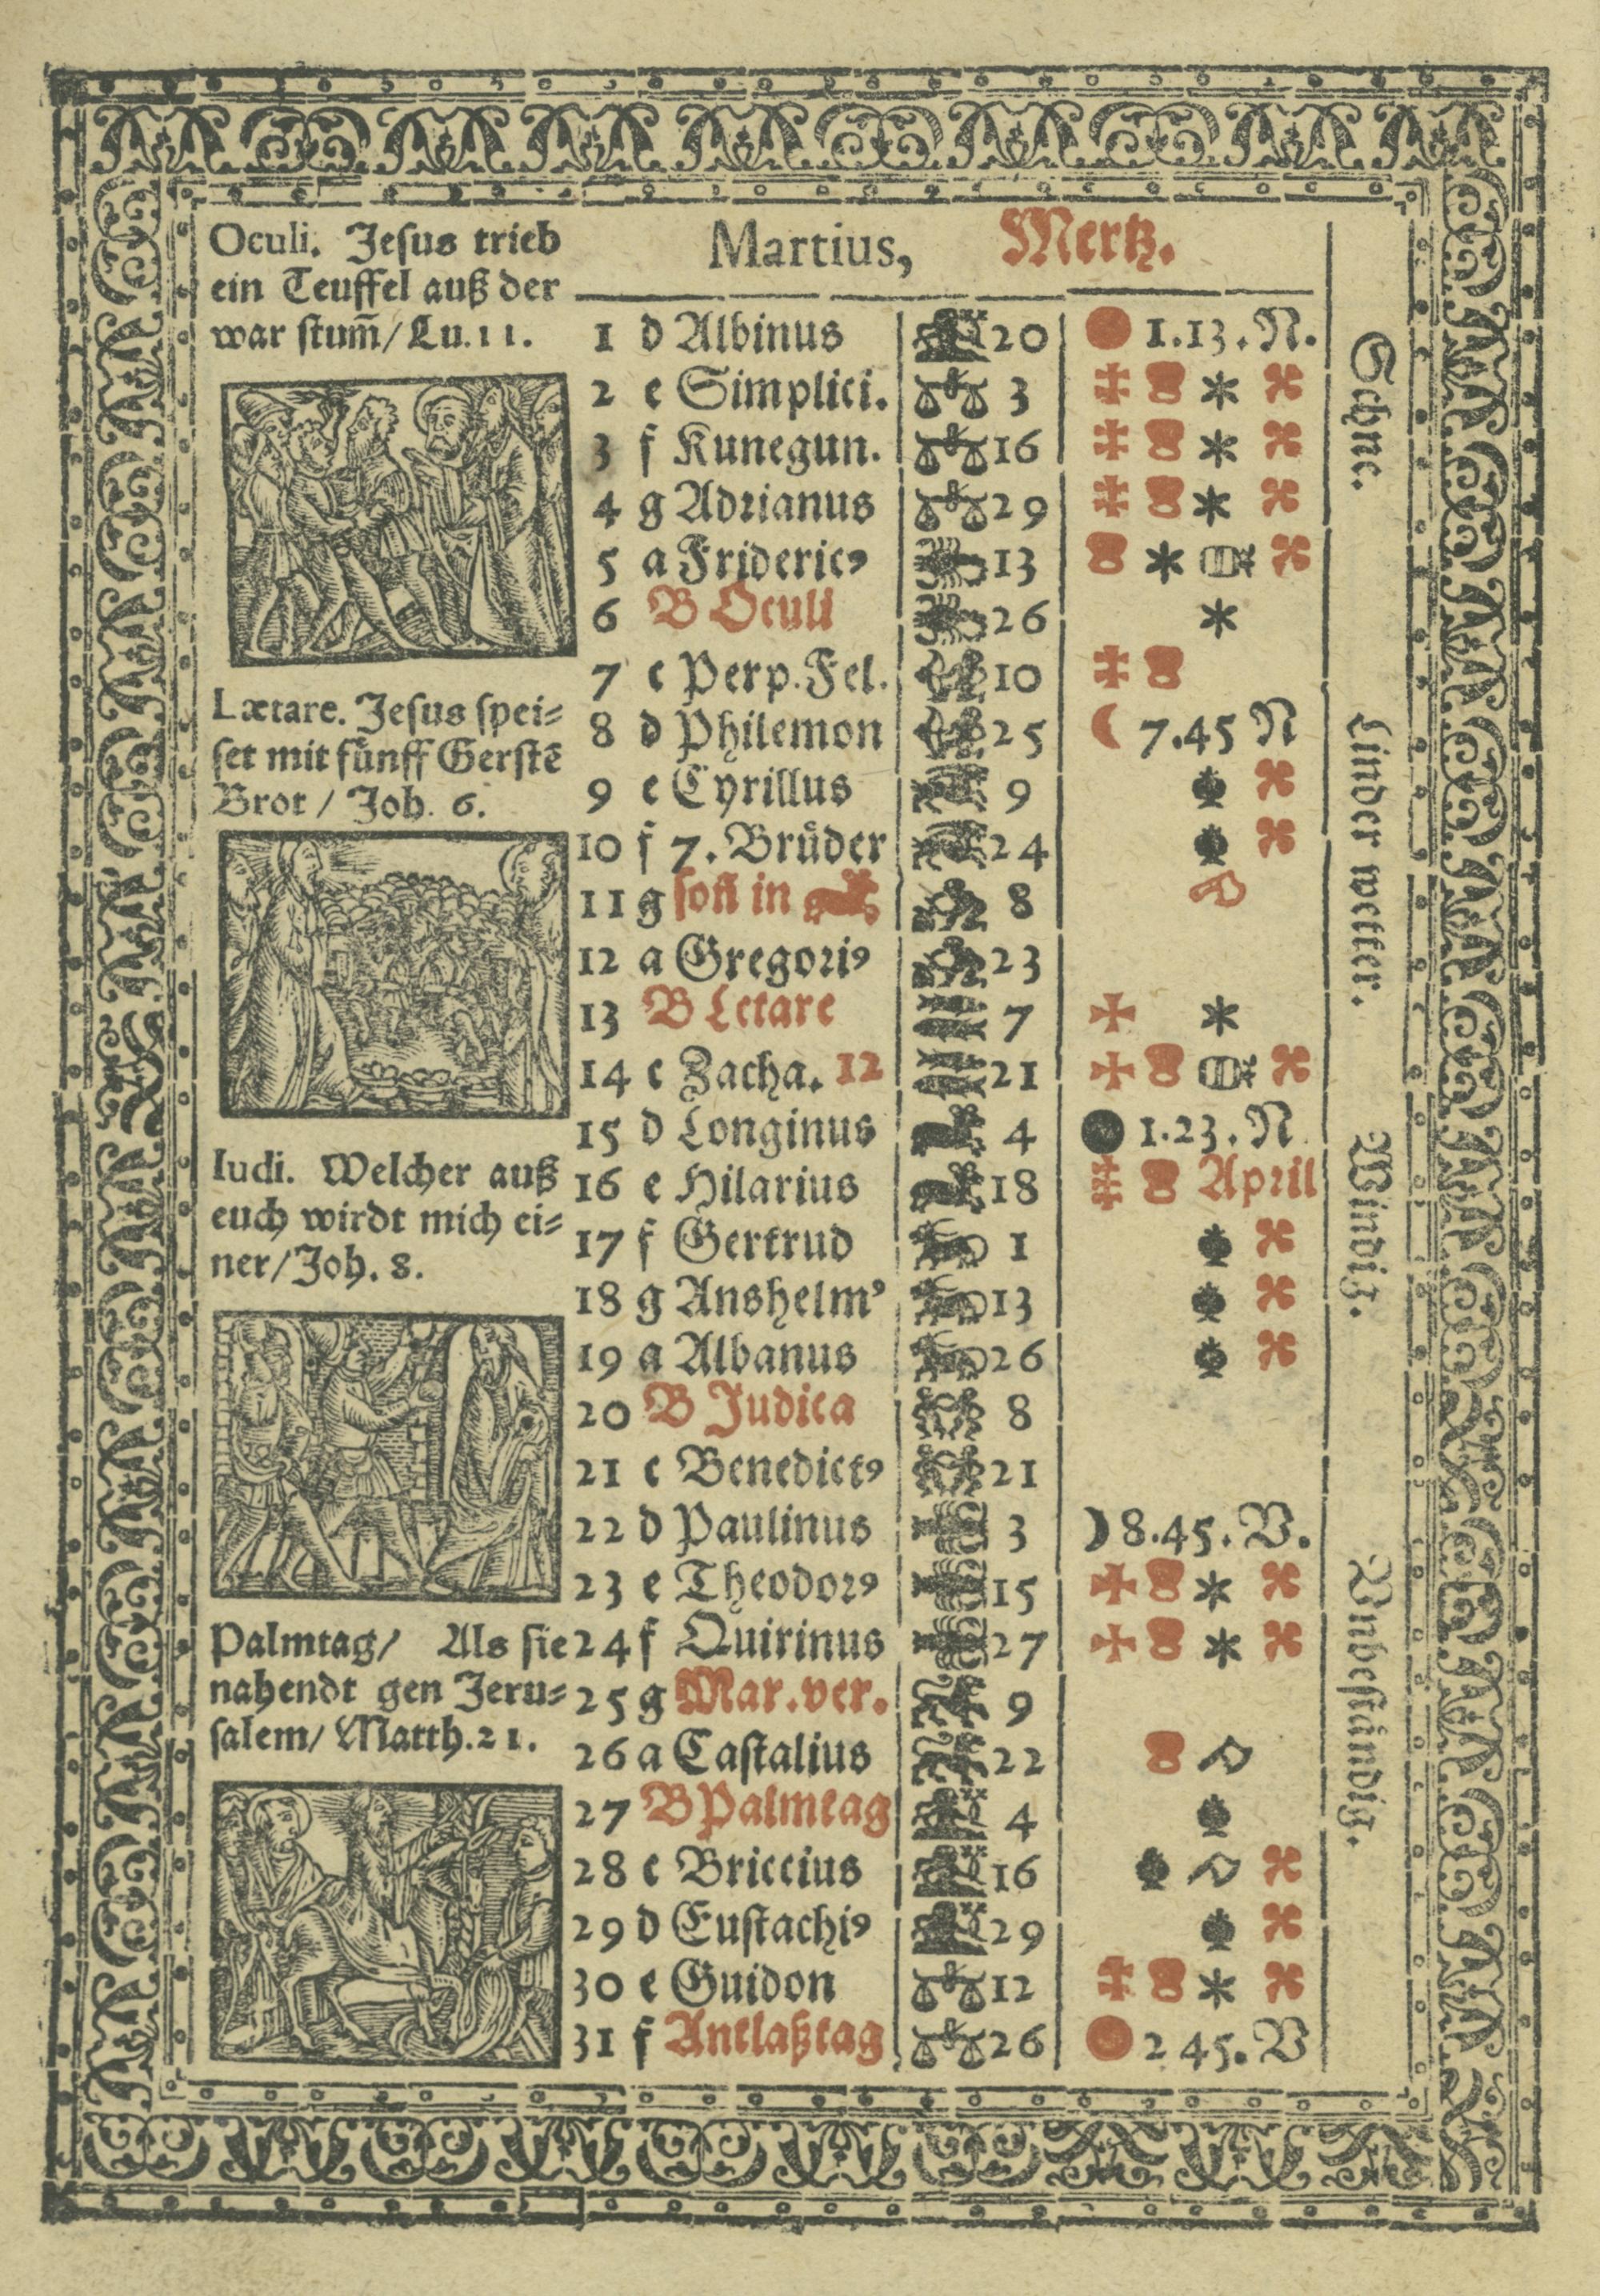 Oculi. Jesus trieb
ein Teuffel auß der
war stum̄/ Lu. 11.
Lætare. Jesus spei=
set mit fůnff Gerstē
Brot / Joh. 6.
Iudi. Welcher auß
euch wirdt mich ei=
ner/Joh. 8.
Palmtag/ Als sie
nahendt gen Jeru=
salem/ Matth. 21.
Martius, Mertz.
1 d Albinus 20 1.13. N.
2 e Simplici. 3
3 f Kunegun. 16
4 g Adrianus 29
5 a Frideric⁹ 13
6 B Oculi 26
7 c Perp. Fel. 10
8 d Philemon 25 7.45 N
9 e Cyrillus 9
10 f 7. Brůder 24
11 g soñ in 8
12 a Gregori⁹ 23
13 B Letare 7
14 c Zacha. 12 21
15 d Longinus 4 1.23. N.
16 e Hilarius 18 April
17 f Gertrud 1
18 g Anshelm⁹ 13
19 a Albanus 26
20 B Judica 8
21 c Benedict⁹ 21
22 d Paulinus 3 8.45. V.
23 e Theodor⁹ 15
24 f Quirinus 27
25 g Mar. ver. 9
26 a Castalius 22
27 B Palmtag 4
28 c Briccius 16
29 d Eustachi⁹ 29
30 e Guidon 12
31 f Antlaßtag 26 2 45. V
Schne.
Linder wetter.
Windig.
Vnbeständig.